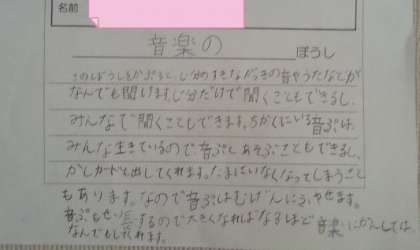 名前
音楽の ぼうし
このぼうしをかぶると、じ分のすきながっきの音やうたなどが
なんでも聞けます。じ分だけで聞くこともできるし、
みんなで聞くこともできます。ちかくにいる音ぷは、
みんな生きているので音ぷとあそぶこともできるし、
がっきだと出してくれます。たまにいなくなってしまうこと
もあります。なので音ぷはむげんにふやせます。
音ぷもせい長するので大きくなればなるほど音楽にかんしては
なんでもしてくれます。